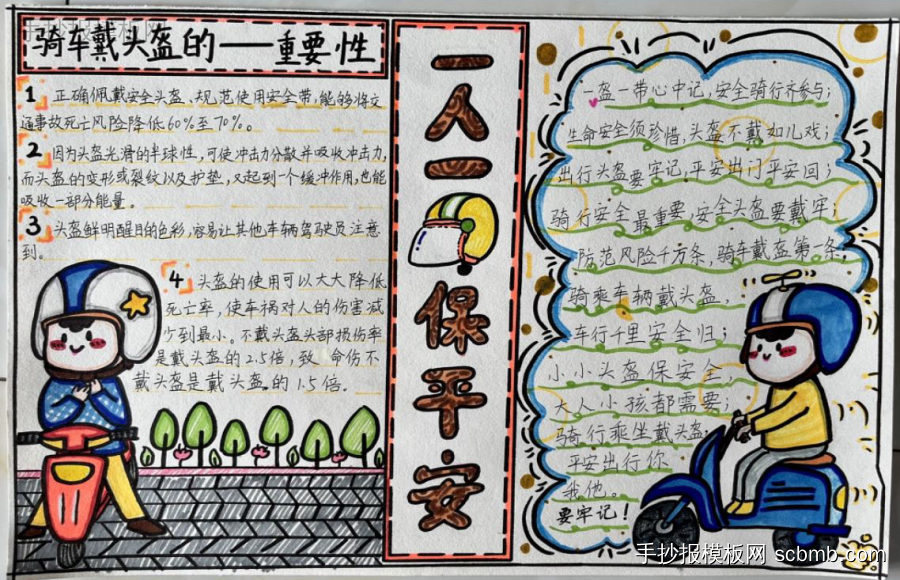 骑车戴头盔的——重要性
1 正确佩戴安全头盔、规范使用安全带,能够将交
通事故死亡风险降低60%至70%。
2 因为头盔光滑的半球性,可使冲击力分散并吸收冲击力,
而头盔的变形或裂纹以及护垫,又起到一个缓冲作用,也能
吸收一部分能量。
3 头盔鲜明醒目的色彩,容易让其他车辆驾驶员注意
到。
4 头盔的使用可以大大降低
死亡率,使车祸对人的伤害减
少到最小。不戴头盔头部损伤率
是戴头盔的2.5倍,致命伤不
戴头盔是戴头盔的1.5倍.
一人一
保平安
一盔一带心中记,安全骑行齐参与;
生命安全须珍惜,头盔不戴如儿戏;
出行头盔要牢记,平安出门平安回;
骑行安全最重要,安全头盔要戴牢;
防范风险千万条,骑车戴盔第一条;
骑乘车辆戴头盔,
车行千里安全归;
小小头盔保安全,
大人小孩都需要;
骑行乘坐戴头盔;
平安出行你
我他。
要牢记!
手抄报模板网 scbmb.com